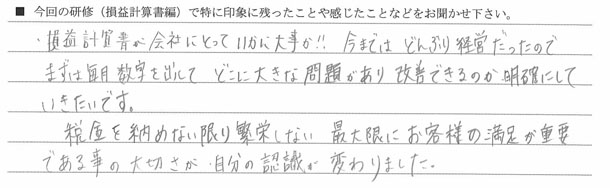 ■ 今回の研修（損益計算書編）で特に印象に残ったことや感じたことなどをお聞かせ下さい。
・損益計算書が会社にとっていかに大事か!! 今までは どんぶり経営だったので
まずは毎月数字を出して どこに大きな問題があり 改善できるのか明確にして
いきたいです。
税金を納めない限り繁栄しない 最大限にお客様の満足が重要
である事の大切さが、自分の認識が変わりました。